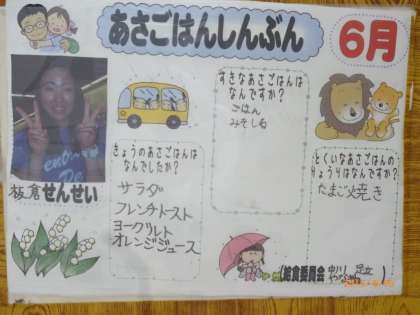 あさごはんしんぶん
6月
すきなあさごはんは
なんですか?
ごはん
みそしる
きょうのあさごはんは
なんでしたか?
サラダ
フレンチトースト
ヨーグルト
オレンジジュース
とくいなあさごはんの
りょうりはなんですか?
たまご焼き
板倉せんせい
(給食委員会
足立